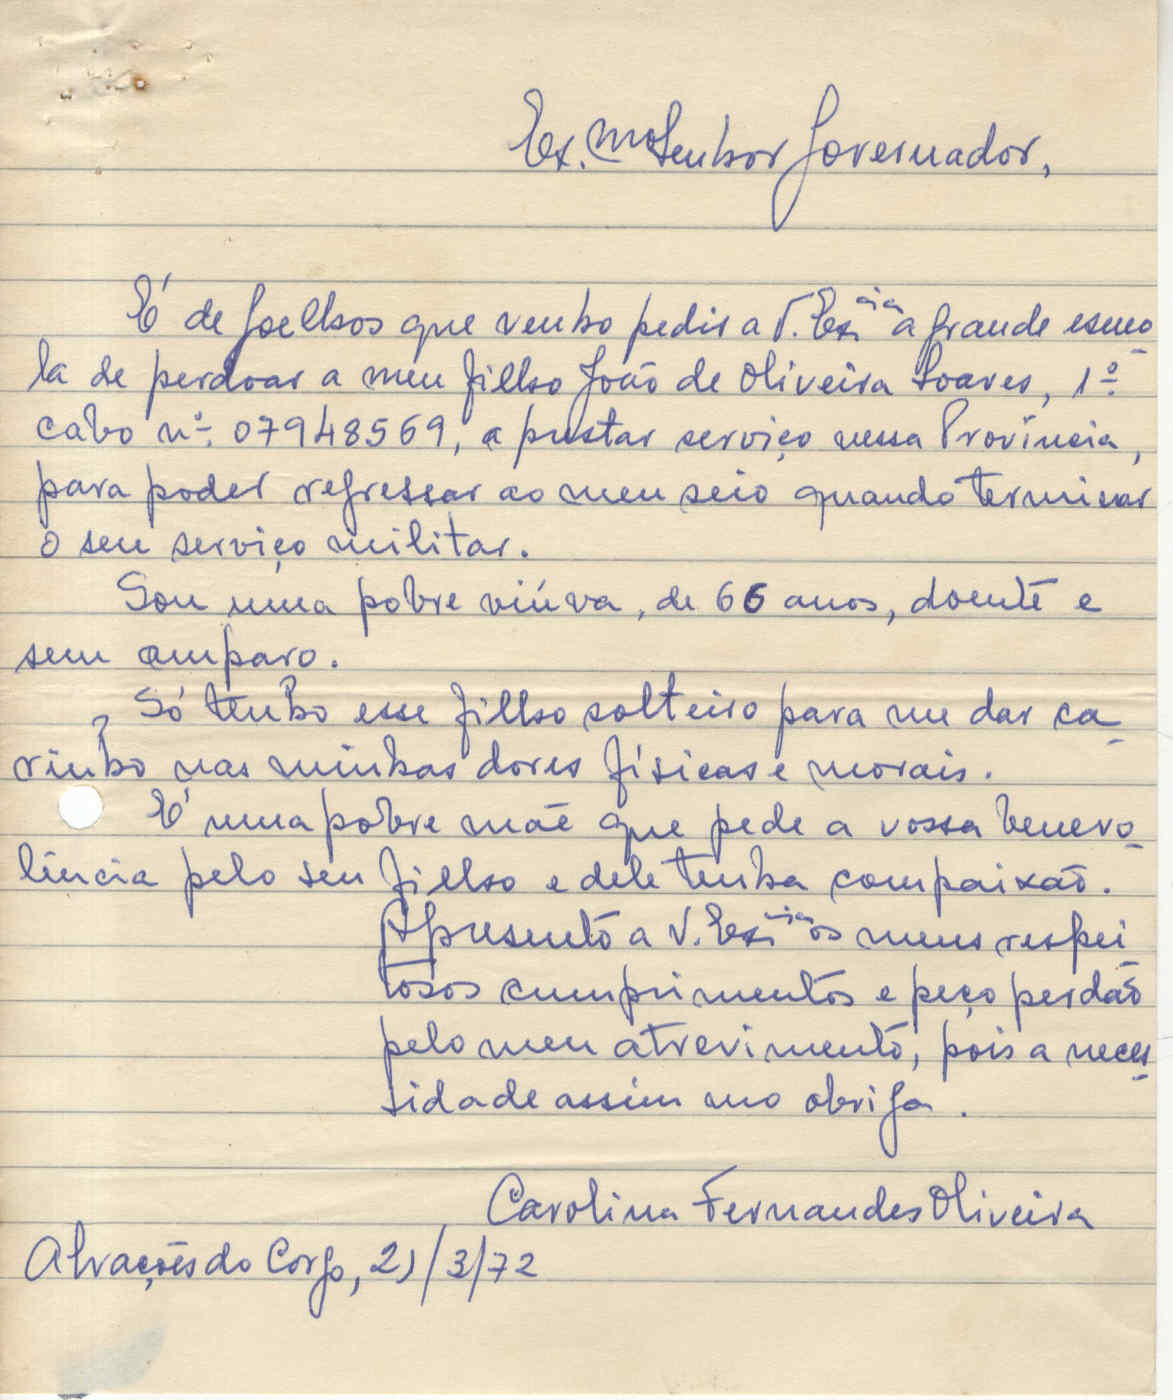 Ex.mo Senhor Governador,
É de joelhos que venho pedir a V. Excia a grande esmo-
la de perdoar a meu filho João de Oliveira Soares, 1º
cabo nº. 07948569, a prestar serviço nessa Província,
para poder regressar ao meu seio quando terminar
o seu serviço militar.
Sou uma pobre viúva, de 66 anos, doente e
sem amparo.
Só tenho esse filho solteiro para me dar ca-
rinho nas minhas dores físicas e morais.
É uma pobre mãe que pede a vossa benevo-
lência pelo seu filho e dele tenha compaixão.
Apresento a V. Excia os meus respei-
tosos cumprimentos e peço perdão
pelo meu atrevimento, pois a neces-
sidade assim mo obriga.
Carolina Fernandes Oliveira
Alvações do Corgo, 21/3/72